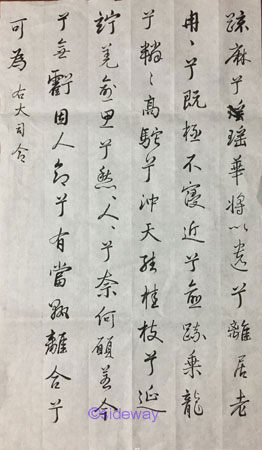 疏麻兮瑤華將以遺兮離居老
冉〻兮既極不寖近兮愈踈乘龍
兮轔〻高駝兮沖天結桂枝兮延
竚羌愈思兮愁〻人〻兮奈何願若今
兮無虧固人命兮有當孰離合兮
可為 右大司命
©sideway